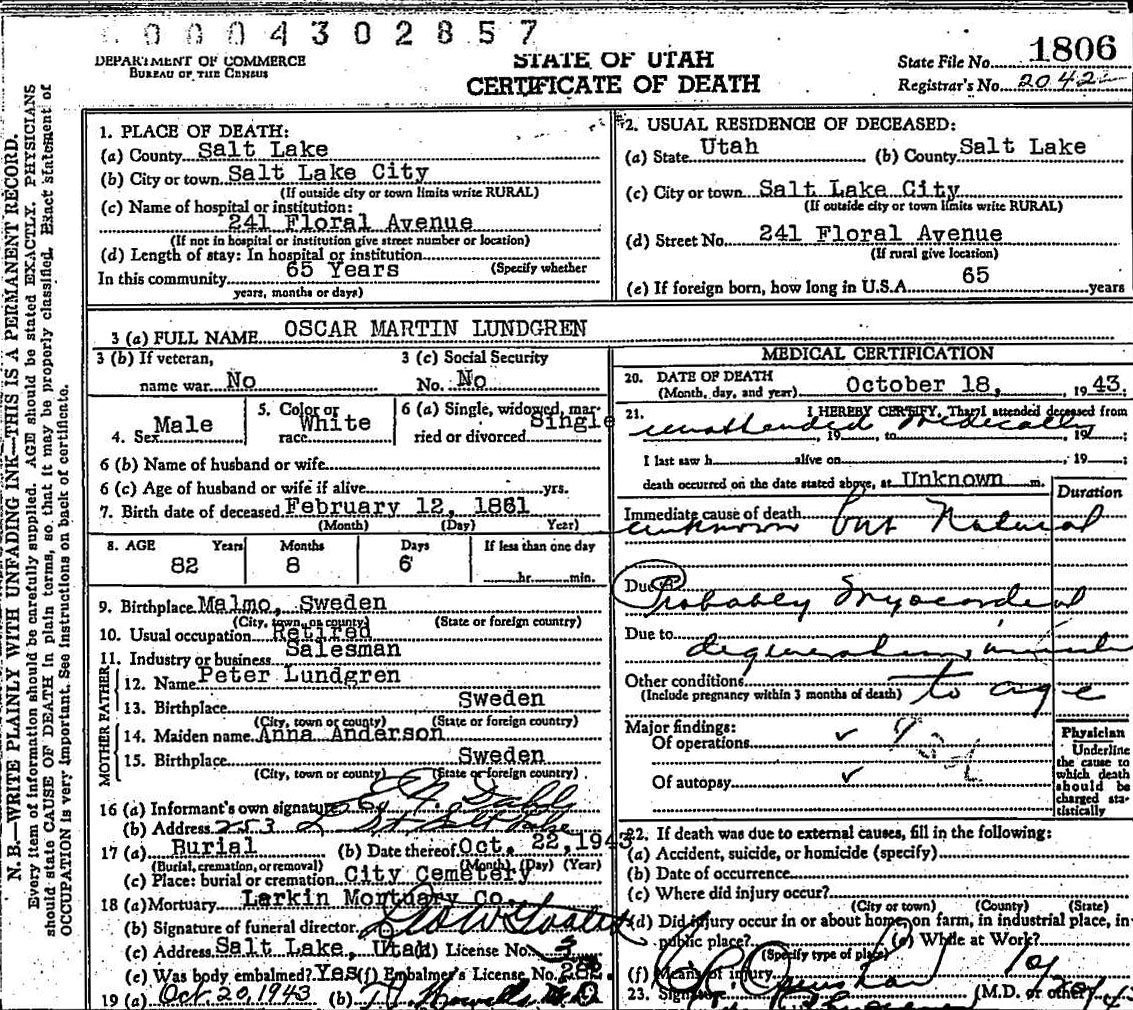 0004302857
DEPARTMENT OF COMMERCE
BUREAU OF THE CENSUS
STATE OF UTAH
CERTIFICATE OF DEATH
State File No. 1806
Registrar's No. 2042
N. B.—WRITE PLAINLY WITH UNFADING INK—THIS IS A PERMANENT RECORD.
Every item of information should be carefully supplied. AGE should be stated EXACTLY. PHYSICIANS
should state CAUSE OF DEATH in plain terms, so that it may be properly classified. Exact statement of
OCCUPATION is very important. See instructions on back of certificate.
1. PLACE OF DEATH:
(a) County Salt Lake
(b) City or town Salt Lake City
(If outside city or town limits write RURAL)
(c) Name of hospital or institution:
241 Floral Avenue
(If not in hospital or institution give street number or location)
(d) Length of stay: In hospital or institution
In this community 65 Years (Specify whether
years, months or days)
2. USUAL RESIDENCE OF DECEASED:
(a) State Utah (b) County Salt Lake
(c) City or town Salt Lake City
(If outside city or town limits write RURAL)
(d) Street No. 241 Floral Avenue
(If rural give location)
(e) If foreign born, how long in U.S.A. 65 years
3 (a) FULL NAME OSCAR MARTIN LUNDGREN
3 (b) If veteran,
name war No
3 (c) Social Security
No. No
4. Sex Male
5. Color or
race White
6 (a) Single, widowed, mar-
ried or divorced Single
6 (b) Name of husband or wife
6 (c) Age of husband or wife if alive yrs.
7. Birth date of deceased February 12, 1861
(Month) (Day) Year)
8. AGE Years Months Days If less than one day
82 8 6 hr. min.
9. Birthplace Malmo, Sweden
(City, town, or county) (State or foreign country)
10. Usual occupation Retired
11. Industry or business Salesman
FATHER
12. Name Peter Lundgren
13. Birthplace Sweden
(City, town or county) (State or foreign country)
MOTHER
14. Maiden name Anna Anderson
15. Birthplace Sweden
(City, town or county) (State or foreign country)
16 (a) Informant's own signature
(b) Address 253 St Salt Lake
17 (a) Burial (b) Date thereof Oct. 22, 1943
(Burial, cremation, or removal) (Month) (Day) (Year)
(c) Place: burial or cremation City Cemetery
18 (a) Mortuary Larkin Mortuary Co.
(b) Signature of funeral director
(c) Address Salt Lake, Utah (d) License No. 3
(e) Was body embalmed? Yes (f) Embalmer's License No.
19 (a) Oct. 20, 1943 (b)
MEDICAL CERTIFICATION
20. DATE OF DEATH
(Month, day, and year) October 18, 1943.
21. I HEREBY CERTIFY, That I attended deceased from
unattended medically, 19, to, 19;
I last saw h alive on, 19;
death occurred on the date stated above, at Unknown m.
Duration
Immediate cause of death
unknown but Natural
Due to
Probably Myocardial
Due to
degeneration, incident
Other conditions to age
(Include pregnancy within 3 months of death)
Major findings:
Of operations ✓
Of autopsy ✓
Physician
Underline
the cause to
which death
should be
charged sta-
tistically
22. If death was due to external causes, fill in the following:
(a) Accident, suicide, or homicide (specify)
(b) Date of occurrence
(c) Where did injury occur?
(City or town) (County) (State)
(d) Did injury occur in or about home, on farm, in industrial place, in
public place? (e) While at Work?
(Specify type of place)
(f) Means of injury
23. Signature (M.D. or other)